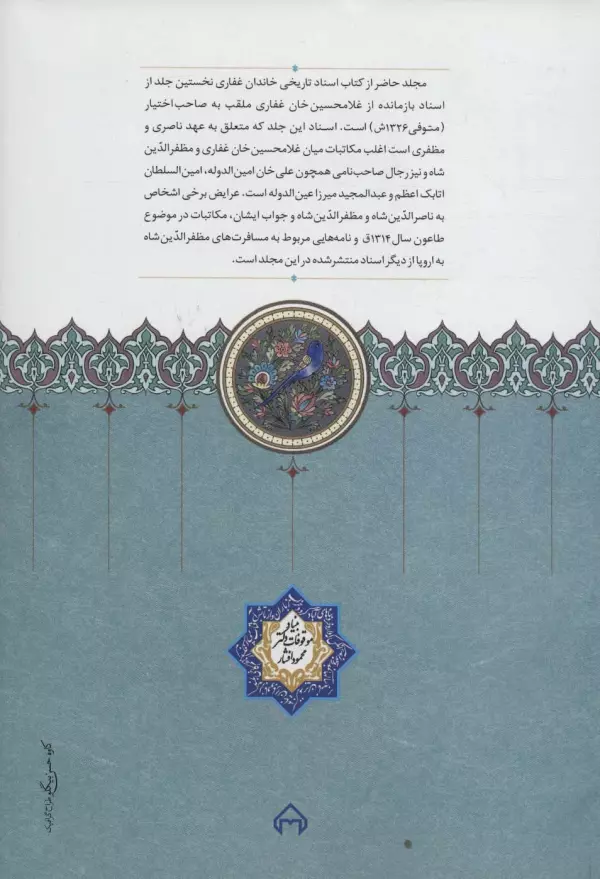 مجلد حاضر از کتاب اسناد تاریخی خاندان غفاری نخستین جلد از
اسناد بازمانده از غلامحسین خان غفاری ملقب به صاحب اختیار
(متوفی ۱۳۲۶ش) است. اسناد این جلد که متعلق به عهد ناصری و
مظفری است اغلب مکاتبات میان غلامحسین خان غفاری و مظفرالدّین
شاه و نیز رجال صاحب‌نامی همچون علی خان امین‌الدوله، امین‌السلطان
اتابک اعظم و عبدالمجید میرزا عین‌الدوله است. عرایض برخی اشخاص
به ناصرالدّین شاه و مظفرالدّین شاه و جواب ایشان، مکاتبات در موضوع
طاعون سال ۱۳۱۴ق و نامه‌هایی مربوط به مسافرت‌های مظفرالدّین شاه
به اروپا از دیگر اسناد منتشر شده در این مجلد است.
بنیاد
موقوفات دکتر
محمود افشار
کاوه حسن بیگلو طراح گرافیک